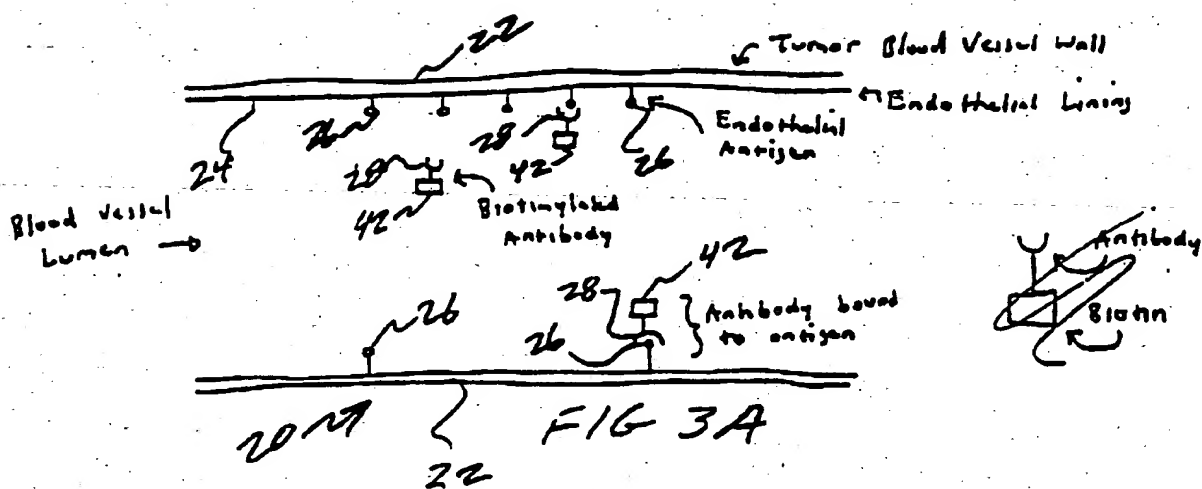 22
Tumor Blood Vessel Wall
Endothelial Lining
24
26
28
42
Endothelial
Antigen
26
28
42
Biotinylated
Antibody
Blood Vessel
Lumen →
26
28
42
26
Antibody bound
to antigen
Antibody
Biotin
20
22
FIG 3A